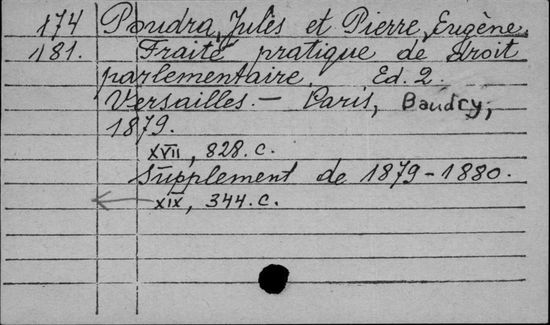 174 Poudra, Jules et Pierre, Eugène.
181. Traité pratique de droit
parlementaire. Ed. 2.
Versailles.— Paris, Baudry,
1879.
XVII, 828. c.
Supplement de 1879-1880.
XIX, 344. c.